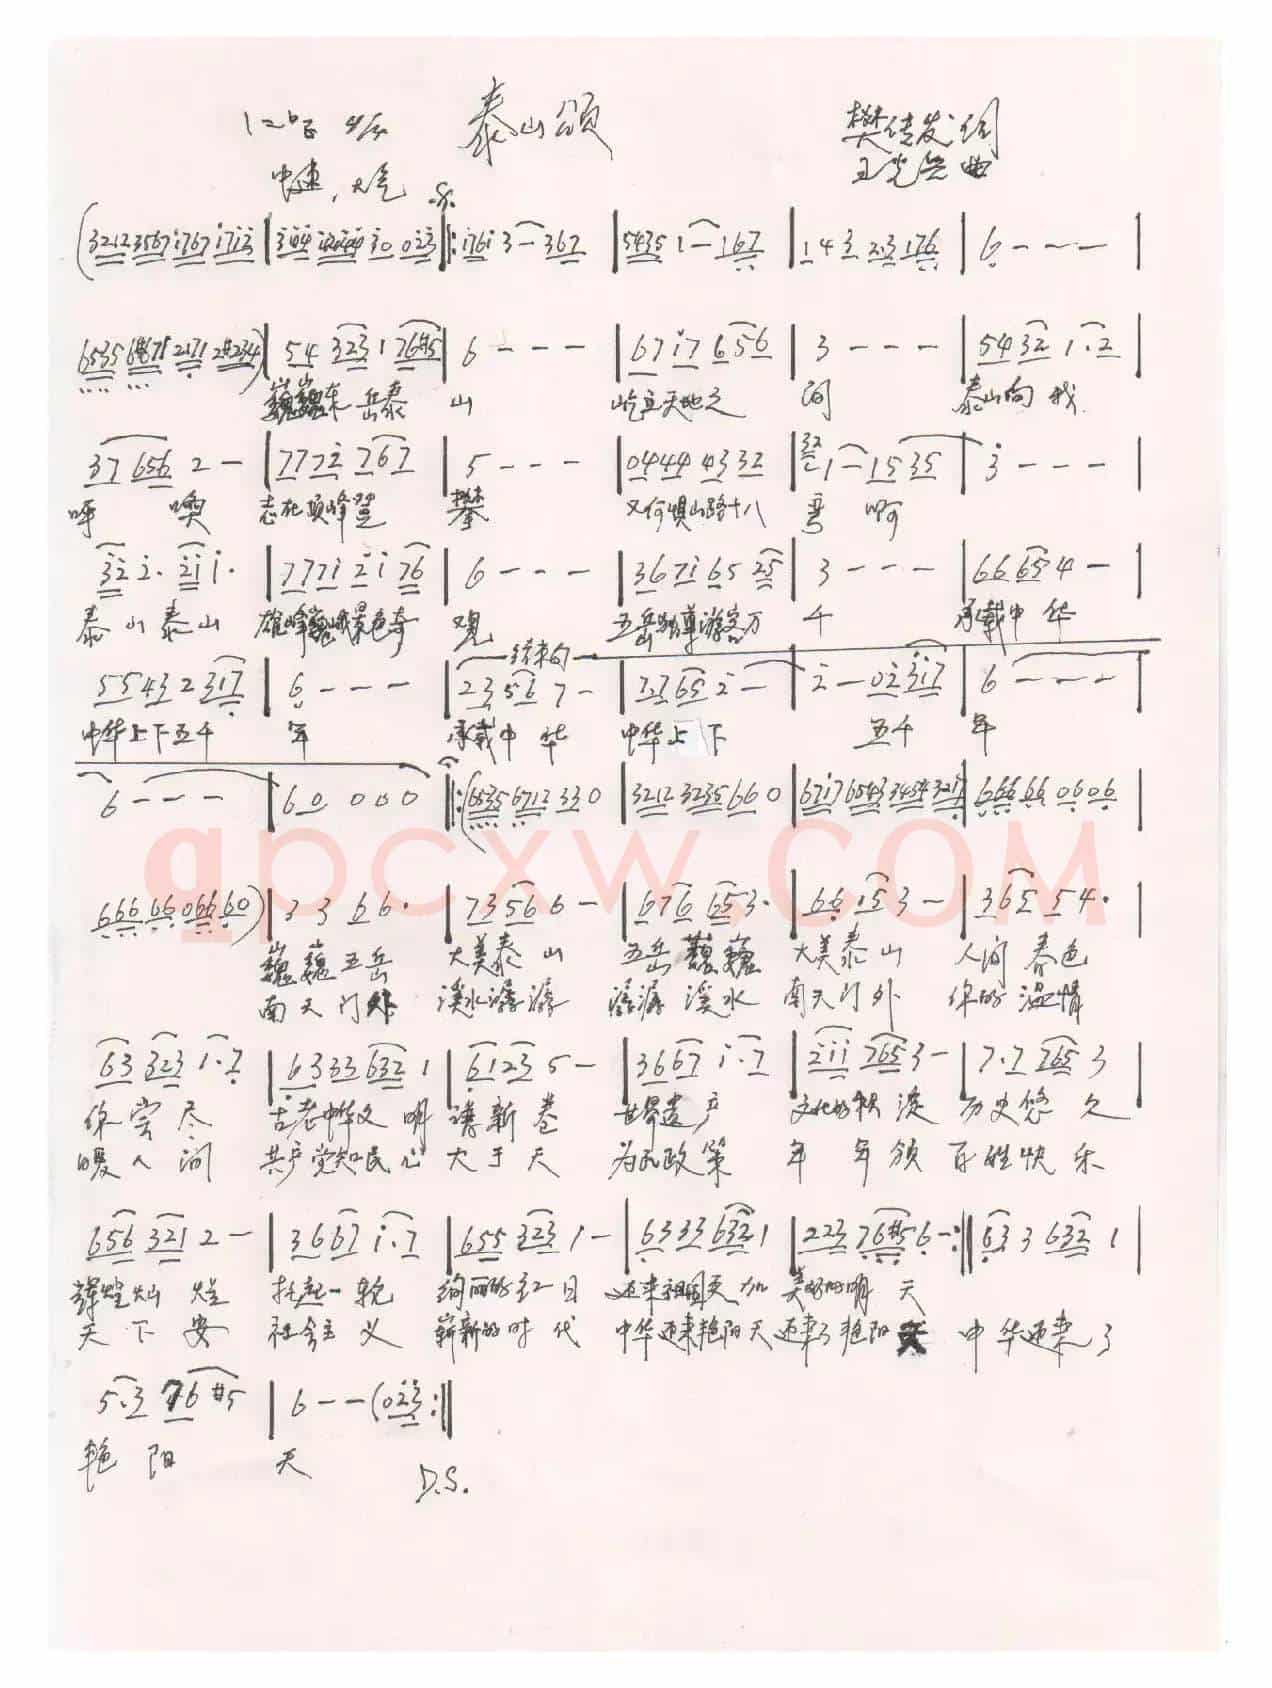 1=ᵇE 4/4 泰山颂 樊传发词
中速，大气 王光无曲
(3212 3567 1767 1712 | 304 30 023 |: 1761 3 — 367 | 5435 1 — 167 | 1 43 2·3 176 | 6 — — — |
6535 6 2171 2#234) | 54 323 1 76#5 | 6 — — — | 67 17 6 56 | 3 — — — | 54 32 1·2 |
巍巍东岳泰 山 屹立天地之 间 泰山向我
37 656 2 — | 77 72 7 67 | 5 — — — | 0444 4332 | 1 — 15 35 | 3 — — — |
呼 唤 志在顶峰 攀 又何惧山路十八 弯 啊
32 2· 21 1· | 77 71 2 1 76 | 6 — — — | 36 71 65 25 | 3 — — — | 66 65 4 — |
泰山泰山 雄峰巍峨景色奇 观 五岳独尊游客万 千 承载中华
结束句
55 43 2 317 | 6 — — — | 23 56 7 — | 7276 5 2 — | 2 — 02 317 | 6 — — — |
中华上下五千 年 承载中华 中华上下 五千 年
6 — — — | 60 0 0 0 |: (6535 6712 33 0 | 3212 3235 66 0 | 6717 6543 3434 3217 | 666 66 06 06 |
666 66 066 60) | 3 3 6 6· | 73 56 6 — | 676 65 3· | 66 15 3 — | 365 5 4· |
巍巍五岳 大美泰山 五岳巍巍 大美泰山 人间春色
南天门外 溪水潺潺 潺潺溪水 南天门外 你的温情
63 323 1·7 | 63 33 632 1 | 61 23 5 — | 36 67 1·7 | 211 765 3 — | 7·7 765 3 |
你尝尽 古老中华文明 谱新卷 世界遗产 文化的积淀 历史悠久
暖人间 共产党知民心 大于天 为民政策 年年颁 百姓快乐
656 321 2 — | 36 67 1·7 | 655 323 1 — | 63 33 632 1 | 223 76#5 6 — :|| 63 3 632 1 |
辉煌灿烂 托起一轮 绚丽的红日 迎来祖国更加 美好的明天
天下安 社会主义 崭新的时代 中华迎来艳阳天 迎来了艳阳天 中华迎来了
5·3 76 #5 | 6 — — (023 :||
艳阳 天
D.S.
qpcxw.COM